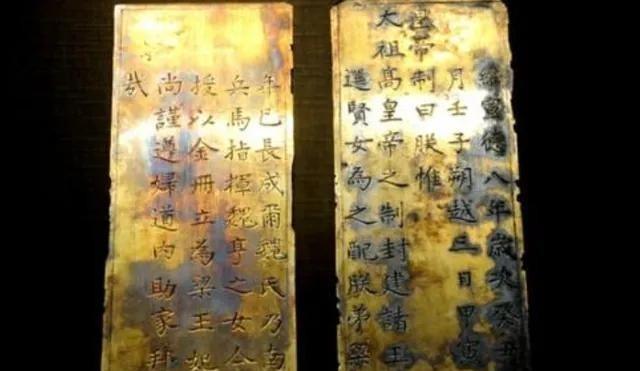 維宣德八年歲次癸丑
月壬子朔越三日甲寅
皇帝制曰朕惟
太祖高皇帝之制封建諸王
選賢女為之配朕弟梁
年已長成爾魏氏乃南
兵馬指揮魏亨之女今
授以金冊立為梁王妃
尚謹遵婦道內助家邦
哉